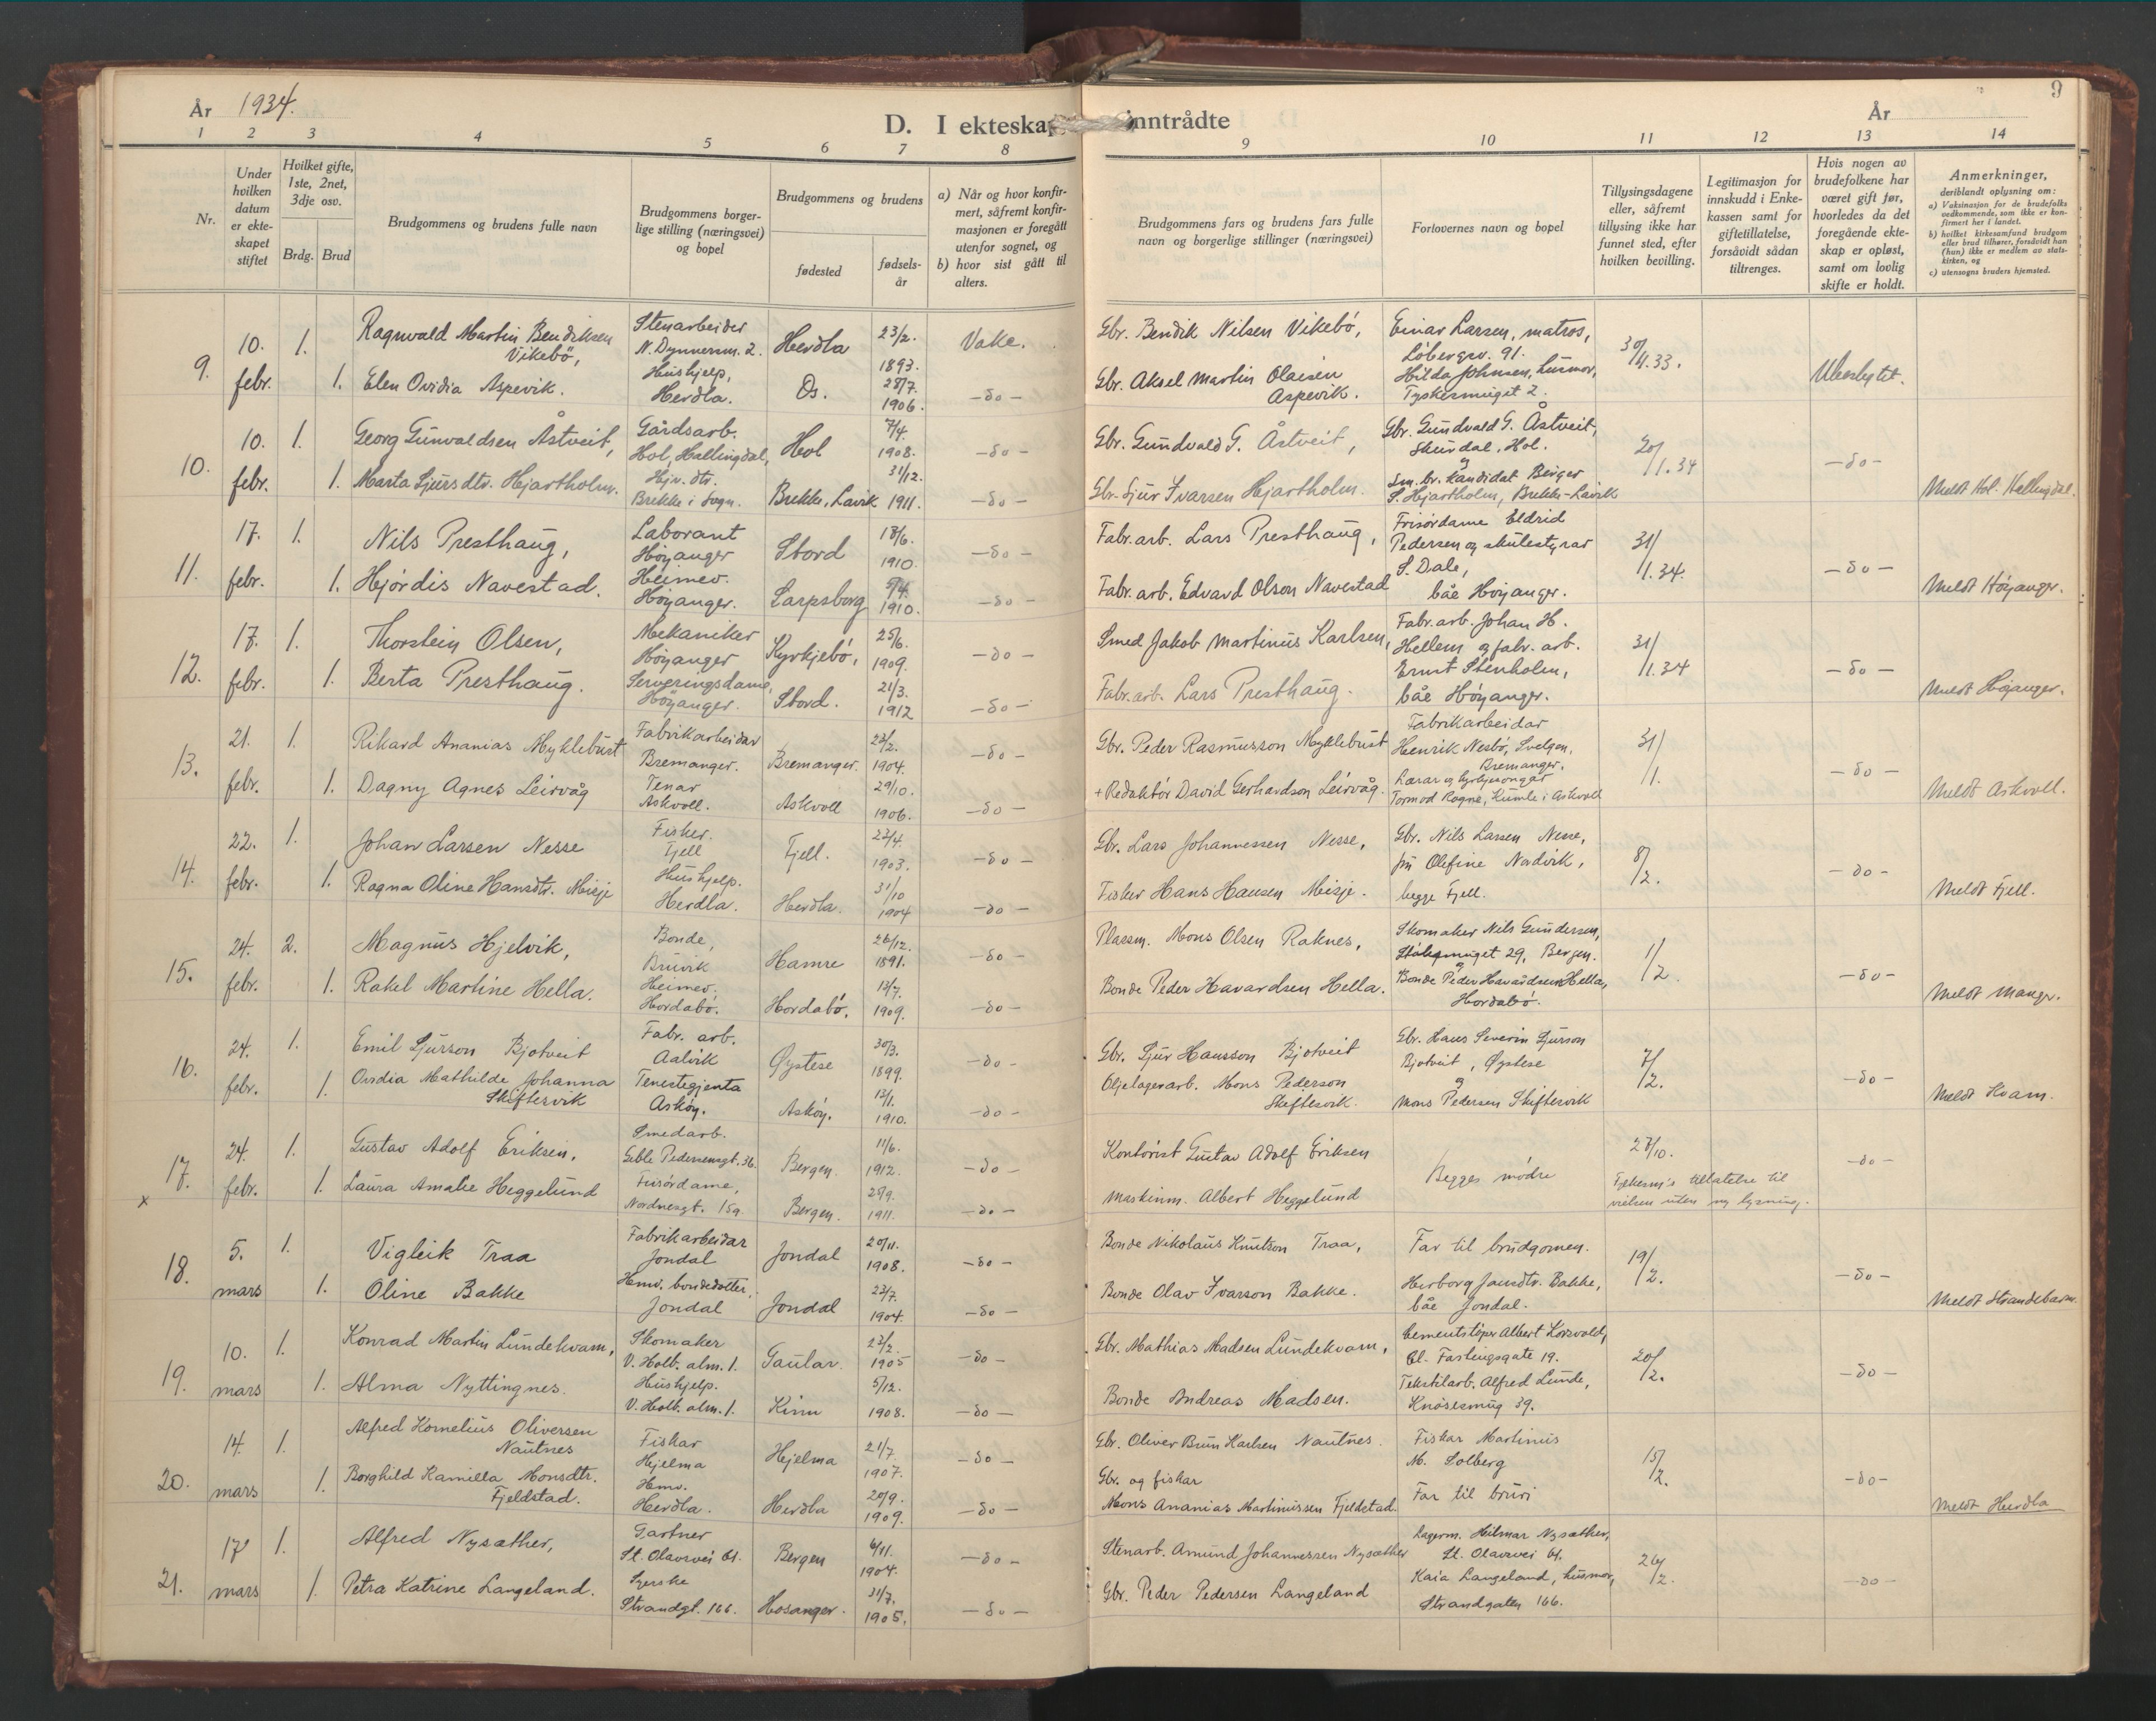 År 1934.
D. I ekteskap inntrådte
År
9
1 2 3 4 5 6 7 8 9 10 11 12 13 14
Nr.
Under hvilken datum er ekte- skapet stiftet
Hvilket gifte, 1ste, 2net, 3dje osv.
Brdg. Brud
Brudgommens og brudens fulle navn
Brudgommens borger- lige stilling (næringsvei) og bopel
Brudgommens og brudens
fødested
fødsels- år
a) Når og hvor konfir- mert, såfremt konfir- masjonen er foregått utenfor sognet, og
b) hvor sist gått til alters.
Brudgommens fars og brudens fars fulle navn og borgerlige stillinger (næringsvei)
Forlovernes navn og bopel
Tillysingsdagene eller, såfremt tillysing ikke har funnet sted, efter hvilken bevilling.
Legitimasjon for innskudd i Enke- kassen samt for giftetillatelse, forsåvidt sådan tiltrenges.
Hvis nogen av brudefolkene har været gift før, hvorledes da det foregående ekte- skap er opløst, samt om lovlig skifte er holdt.
Anmerkninger, deriblandt oplysning om:
a) Vaksinasjon for de brudefolks vedkommende, som ikke er kon- firmert her i landet.
b) hvilket kirkesamfund brudgom eller brud tilhører, forsåvidt han (hun) ikke er medlem av stats- kirken, og
c) utensogns bruders hjemsted.
9. 10. febr. 1. Ragnvald Martin Bendiksen Vikebö, Stenarbeider N. Dynnersm. 2. Herdla 23/2. 1893. Vake. Gbr. Bendik Nilsen Vikebö, Einar Larsen, matros, Löbergsv. 91. 30/11.33. Ubeskytet.
1. Elen Ovidia Aspevik. Hushjelp, Herdla. Os. 28/7 1906. -do- Gbr. Aksel Martin Olaisen Aspevik. Hilda Johnsen, husmor, Tyskesmuget 2.
10. 10. febr. 1. Georg Gunvaldsen Åstveit, Gårdsarb. Hol, Hallingdal, Hol 7/4. 1908. -do- Gbr. Gundvald G. Åstveit, Gbr. Gundvald G. Åstveit, Skurdal, Hol. og 20/1.34 -do-
1. Marta Sjursdtr. Hjartholm. Hjv. dtr. Brekke i Sogn. Brekke, Lavik 31/12. 1911. -do- Gbr. Sjur Ivarsen Hjartholm. Sm. br. kandidat Berger S. Hjartholm, Brekke-Lavik Meldt Hol. Hallingdal.
11. 17. febr. 1. Nils Presthaug, Laborant Höyanger Stord 18/6. 1910. -do- Fabr. arb. Lars Presthaug, Frisördame Eldrid Pedersen og skulestyrar 31/1.34. -do-
1. Hjördis Navestad. Heimev. Höyanger. Sarpsborg 5/4. 1910. -do- Fabr. arb. Edvard Olson Navestad S. Dale, båe Höyanger. Meldt Höyanger.
12. 17. febr. 1. Thorstein Olsen, Mekaniker Höyanger Kyrkjebö, 25/6. 1909. -do- Smed Jakob Martinus Karlsen, Fabr. arb. Johan H. Hellem og fabr. arb. 31/1.34 -do-
1. Berta Presthaug. Serveringsdame, Höyanger. Stord. 21/3. 1912 -do- Fabr. arb. Lars Presthaug. Ernst Stenholm, båe Höyanger. Meldt Höyanger.
13. 21. febr. 1. Rikard Ananias Myklebust Fabrikarbeidar Bremanger. Bremanger. 23/2. 1904. -do- Gbr. Peder Rasmusson Myklebust Fabrikarbeidar Henrik Nesbö, Svelgen, Bremanger. 31/1. -do-
1. Dagny Agnes Leirvåg Tenar Askvoll. Askvoll 29/10. 1906. -do- + Redaktör David Gerhardson Leirvåg. Lærar og kyrkjesongar Tormod Ragne, Kumle i Askvoll Meldt Askvoll.
14. 22. febr. 1. Johan Larsen Nesse Fisker. Fjell Fjell. 23/4 1903. -do- Gbr. Lars Johannessen Nesse, Gbr. Nils Larsen Nesse, 8/2. -do-
1. Ragna Oline Hansdtr. Misje Hushjelp. Herdla. Herdla. 31/10 1904 -do- Fisker Hans Hansen Misje. fru Olefine Nordvik, begge Fjell. Meldt Fjell.
15. 24. febr. 2. Magnus Hjelvik, Bonde, Bruvik Hamre 26/12. 1891. -do- Plassm. Mons Olsen Raknes, Skomaker Nils Gundersen, 29, Bergen. og 1/2 -do-
1. Rakel Martine Hella. Heimev. Hordabö. Hordabö. 13/7. 1909. -do- Bonde Peder Havardsen Hella. Bonde Peder Havardsen Hella, Hordabö. Meldt Manger.
16. 24. febr. 1. Emil Sjurson Bjotveit Fabr. arb. Aalvik Øystese 30/3. 1899. -do- Gbr. Sjur Hansson Bjotveit Gbr. Hans Severin Sjurson Bjotveit, Øystese og 7/2. -do-
1. Ovidia Mathilde Johanna Skiftesvik Tenestegjenta Asköy. Asköy. 13/1. 1910. -do- Oljelagerarb. Mons Pederson Skiftesvik. Mons Pedersen Skiftesvik Meldt Kvam.
17. x 24. febr. 1. Gustav Adolf Eriksen, Smedarb. Geble Pederssensgt. 36. Bergen. 11/6. 1912. -do- Kontorist Gustav Adolf Eriksen Begges mödre 27/10. -do-
1. Laura Amalie Heggelund Frisördame, Nordnesgt. 15a. Bergen. 28/9. 1911. -do- Maskinm. Albert Heggelund Fylkesm's tillatelse til vielsen uten ny lysning.
18. 5. mars 1. Vigleik Traa Fabrikarbeidar Jondal Jondal 20/11. 1908. -do- Bonde Nikolaus Knutson Traa, Far til brudgomen. 19/2. -do-
1. Oline Bakke Hmv. bondedotter, Jondal Jondal 23/7. 1904. -do- Bonde Olav Ivarson Bakke. Herborg Jansdtr. Bakke, båe Jondal. Meldt Strandebarm.
19. 10. mars 1. Konrad Martin Lundekvam, Skomaker V. Holb. alm. 1. Gaular. 23/2. 1905 -do- Gbr. Mathias Madsen Lundekvam, Cementstöper Albert Korsvold, Cl. Fastingsgate 19. 20/2. -do-
1. Alma Nyttingnes. Hushjelp. V. Holb. alm. 1. Kinn 5/12. 1908. -do- Bonde Andreas Madsen. Tekstilarb. Alfred Lunde, Knösesmug 39.
20. 14. mars 1. Alfred Kornelius Oliversen Nautnes Fiskar Hjelma Hjelma 21/7 1907. -do- Gbr. Oliver Brun Karlsen Nautnes. Fiskar Martinus M. Solberg 15/2. -do-
1. Borghild Kamilla Monsdtr. Fjeldstad. Hmv. Herdla. Herdla 20/9. 1909. -do- Gbr. og fiskar Mons Ananias Martinussen Fjeldstad. Far til bruri Meldt Herdla
21. 17. mars 1. Alfred Nysæther, Gartner St. Olavsvei 61. Bergen 6/11. 1904. -do- Stenarb. Amund Johannessen Nysæther Lagerm. Hilmar Nysæther, St. Olavsvei 61. 26/2. -do-
1. Petra Katrine Langeland. Syerske Strandgt. 166. Hosanger. 31/7. 1905. -do- Gbr. Peder Pedersen Langeland Kaia Langeland, husmor, Strandgaten 166.